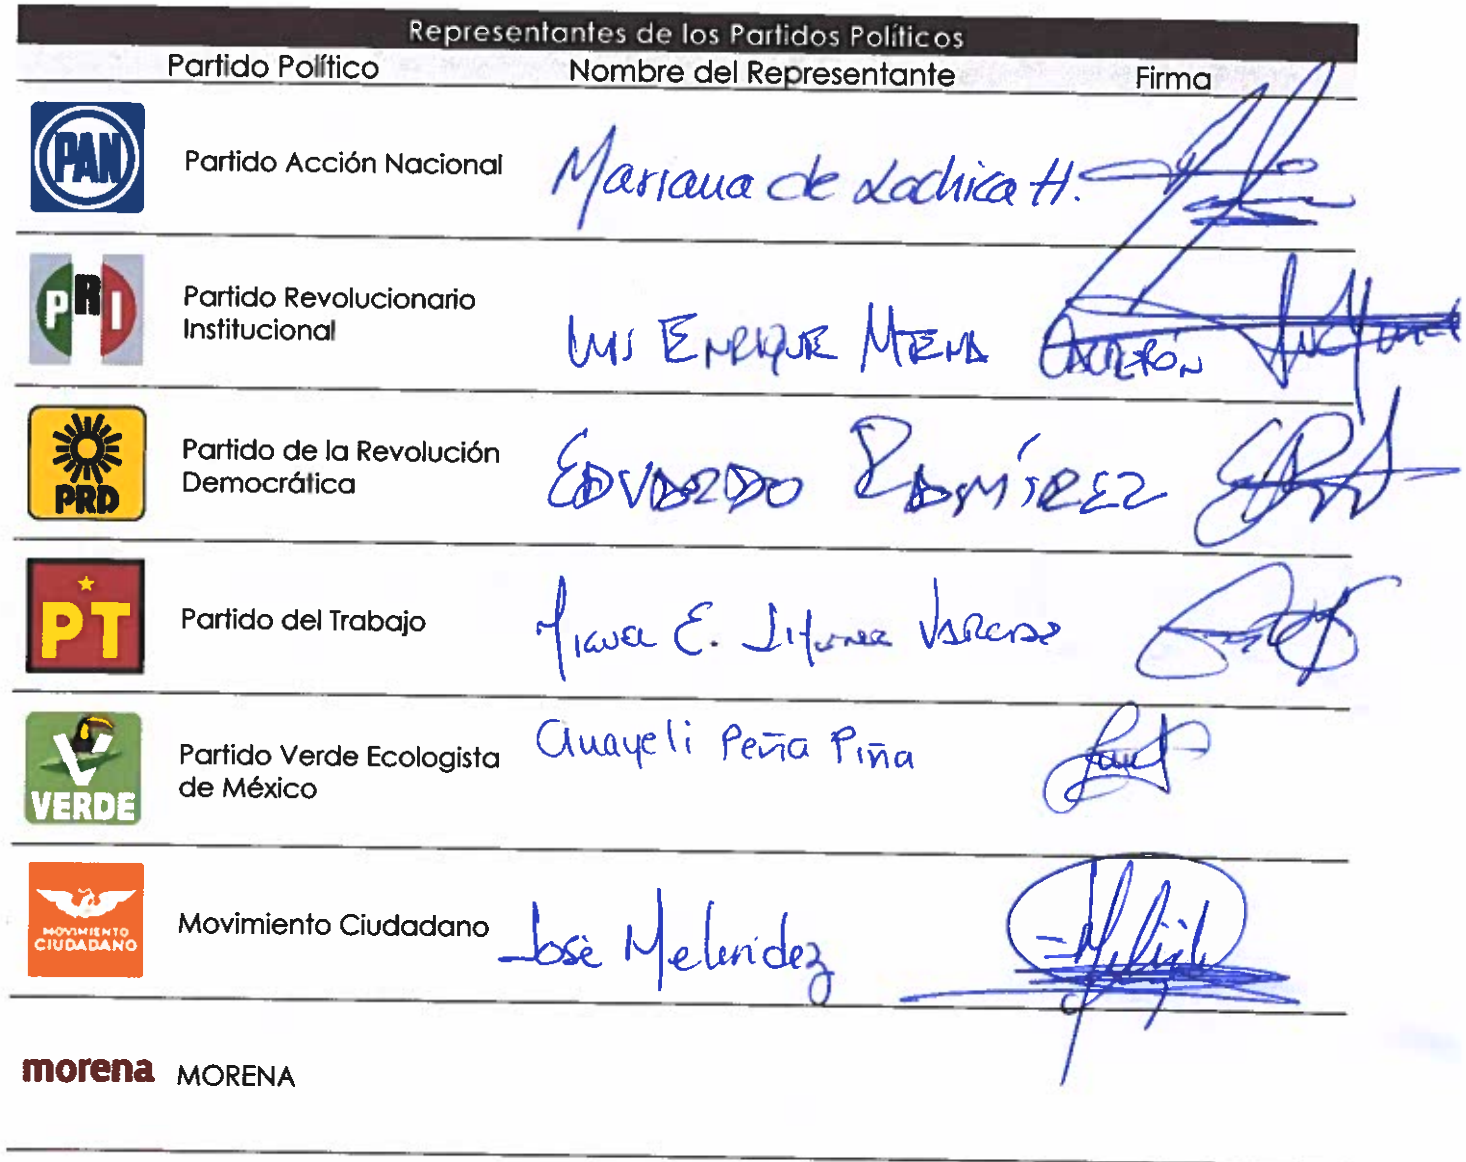 Representantes de los Partidos Políticos
Partido Político Nombre del Representante Firma
PAN Partido Acción Nacional Mariana de Lachica H.
PRI Partido Revolucionario
Institucional Luis Enrique Mena Calderón
PRD Partido de la Revolución
Democrática Eduardo Ramírez
PT Partido del Trabajo Miguel E. Jiménez
VERDE Partido Verde Ecologista
de México Anayeli Peña Piña
MOVIMIENTO
CIUDADANO Movimiento Ciudadano José Meléndez
morena MORENA